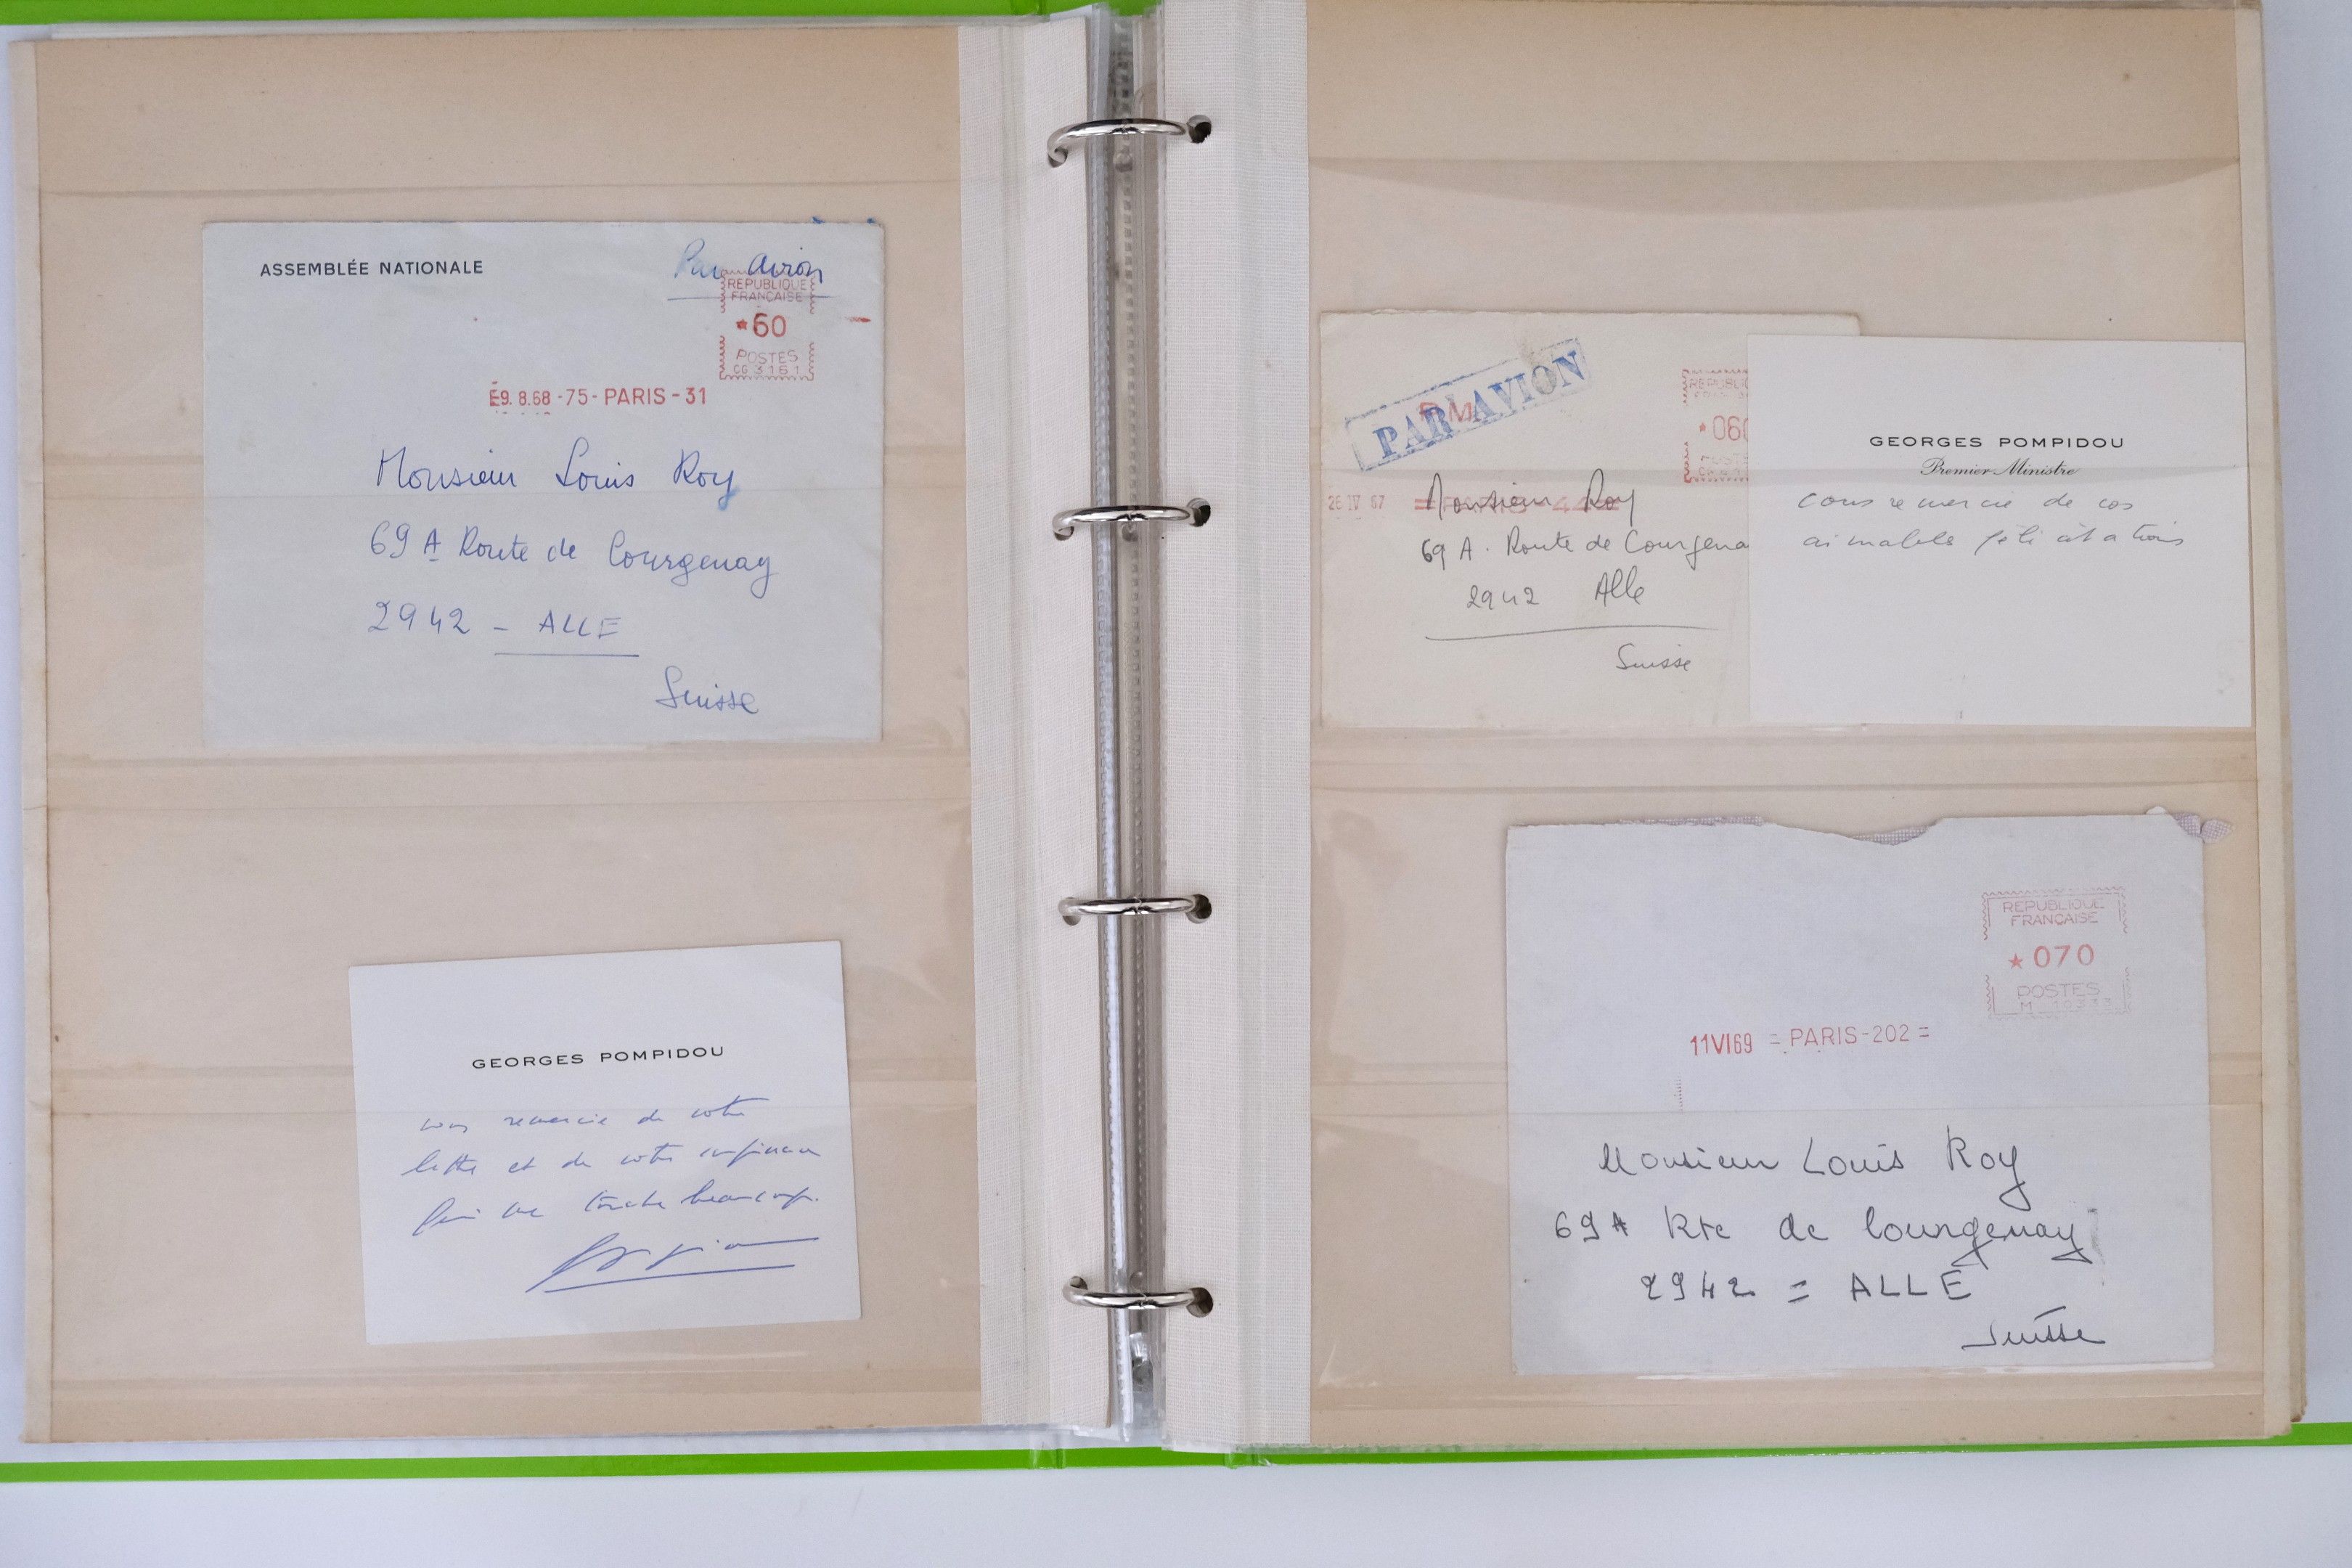 ASSEMBLÉE NATIONALE
Par avion
REPUBLIQUE
FRANÇAISE
*60
POSTES
CG 3161
9.8.68 -75- PARIS - 31
Monsieur Louis Roy
69 A Route de Courgenay
2942 - ALLE
Suisse
GEORGES POMPIDOU
vous remercie de votre
lettre et de votre confiance
qui me touche beaucoup.
PAR AVION
REPUBLIQ
*060
POSTE
26 IV 67
Monsieur Roy
69 A. Route de Courgena
2942 Alle
Suisse
GEORGES POMPIDOU
Premier Ministre
vous remercie de vos
aimables félicitations
REPUBLIQUE
FRANÇAISE
★070
POSTES
11 VI 69 = PARIS-202 =
Monsieur Louis Roy
69 A Rte de Courgenay
2942 = ALLE
Suisse